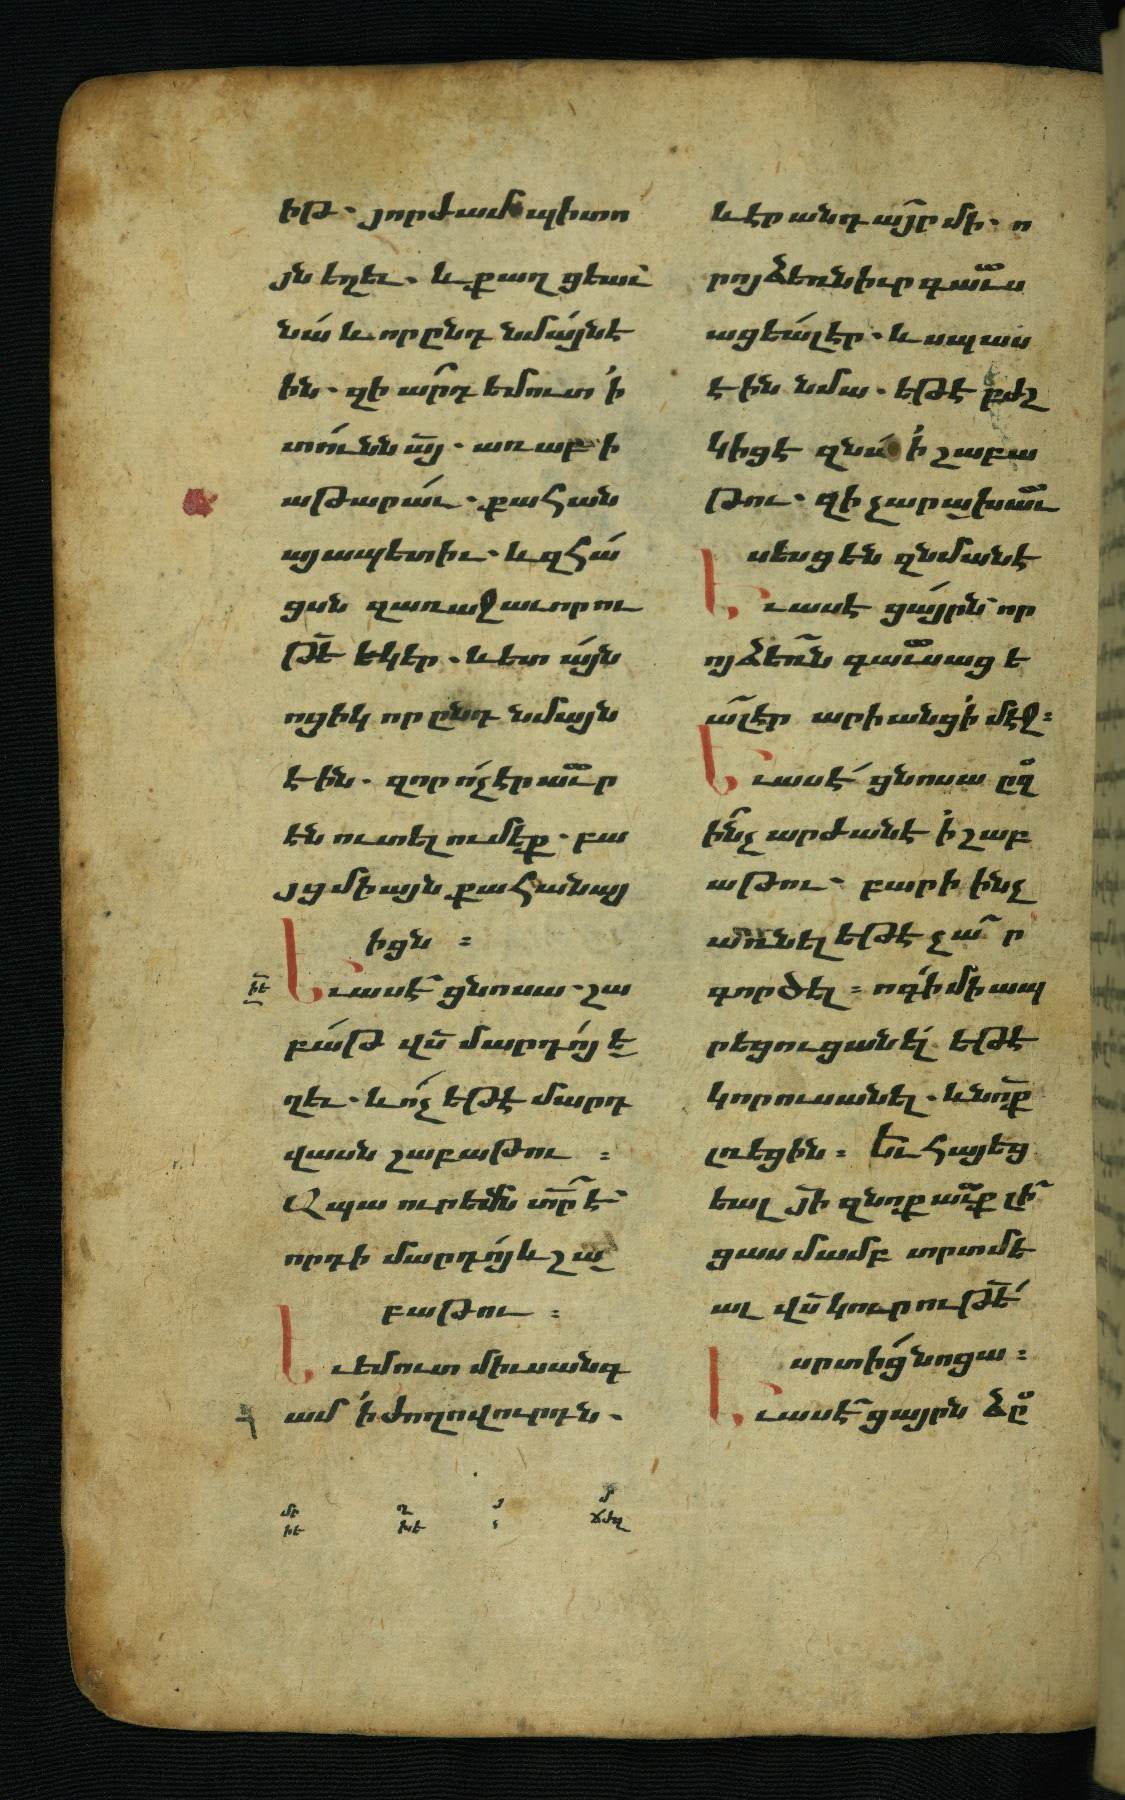 իթ. յորժամ պիտո
յն եղեւ. և քաղցեաւ
նա և որ ընդ նմայնէ
ին. զի արդ եմուտ ի
տունն այ. առ աբի
աթարաւ. քահան
այապետիւ. և զհա
ցսն զառաջաւորու
թե եկեր. և ետ այն
ոցիկ որ ընդ նմայն
էին. զոր ոչ էր աւր
էն ուտել ումեք. բա
յց միայն քահանայ
իցն :
Եւ ասէ ցնոսա. շա
բաթ վն մարդոյ ե
ղեւ. և ոչ եթէ մարդ
վասն շաբաթու :
Ապա ուրեմն տր է
որդի մարդոյ և շա
բաթու :
Եւ եմուտ միւսանգ
ամ ի ժողովուրդն.
և էր անդ այր մի. ո
րոյ ձեռն իւր գաւս
ացեալ էր. և սպաս
էին նմա. եթէ բժշ
կիցէ զնա ի շաբա
թու. զի չարախաւ
սեսցեն զնմանէ
Եւ ասէ ցայրն որ
ոյ ձեռն գաւսացե
ալ էր արի անց ի մէջ :
Եւ ասէ ցնոսա ըզ
ինչ արժանէ ի շաբ
աթու. բարի ինչ
առնել եթէ չար
գործել : ոգի մի ապ
րեցուցանել եթէ
կորուսանել. և նոք
լռեցին : Եւ հայեց
եալ յի զնոքաւք լի
ցաս մամբ տրտմե
ալ վն կուրութե
սրտից նոցա :
Եւ ասէ ցայրն ձը